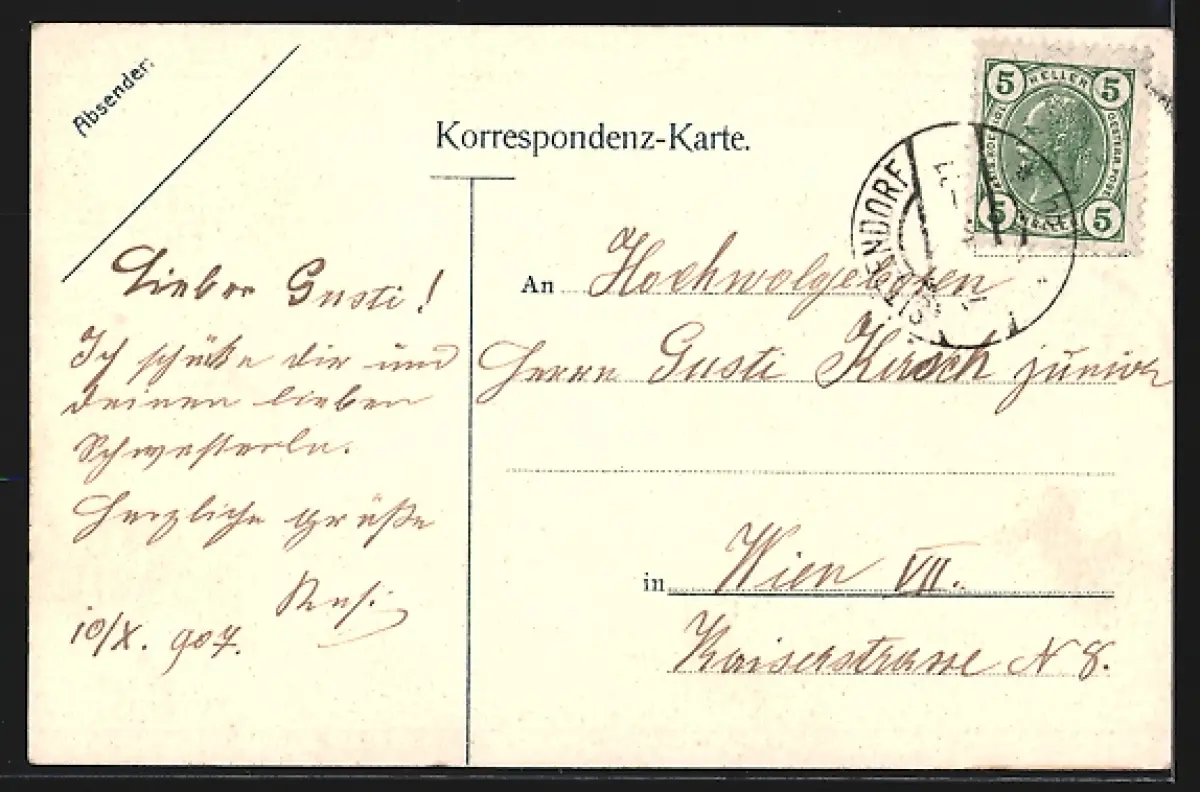 Absender:
Korrespondenz-Karte.
5 HELLER 5
5 5
Lieber Gusti!
Ich schicke dir und
deinen lieben
Schwesterln.
Herzliche Grüße
10/X. 907.
An Hochwolgeboren
Herrn Gusti Kirsch junior
in Wien VII.
Kaiserstrasse N 8.